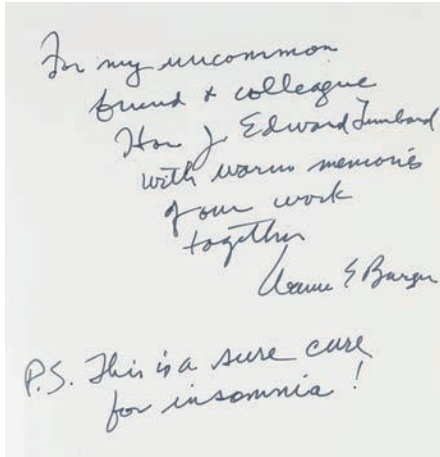 For my uncommon
friend & colleague
Hon J. Edward Lumbard
with warm memories
of our work
together
Warren E Burger
P.S. This is a sure cure
for insomnia!